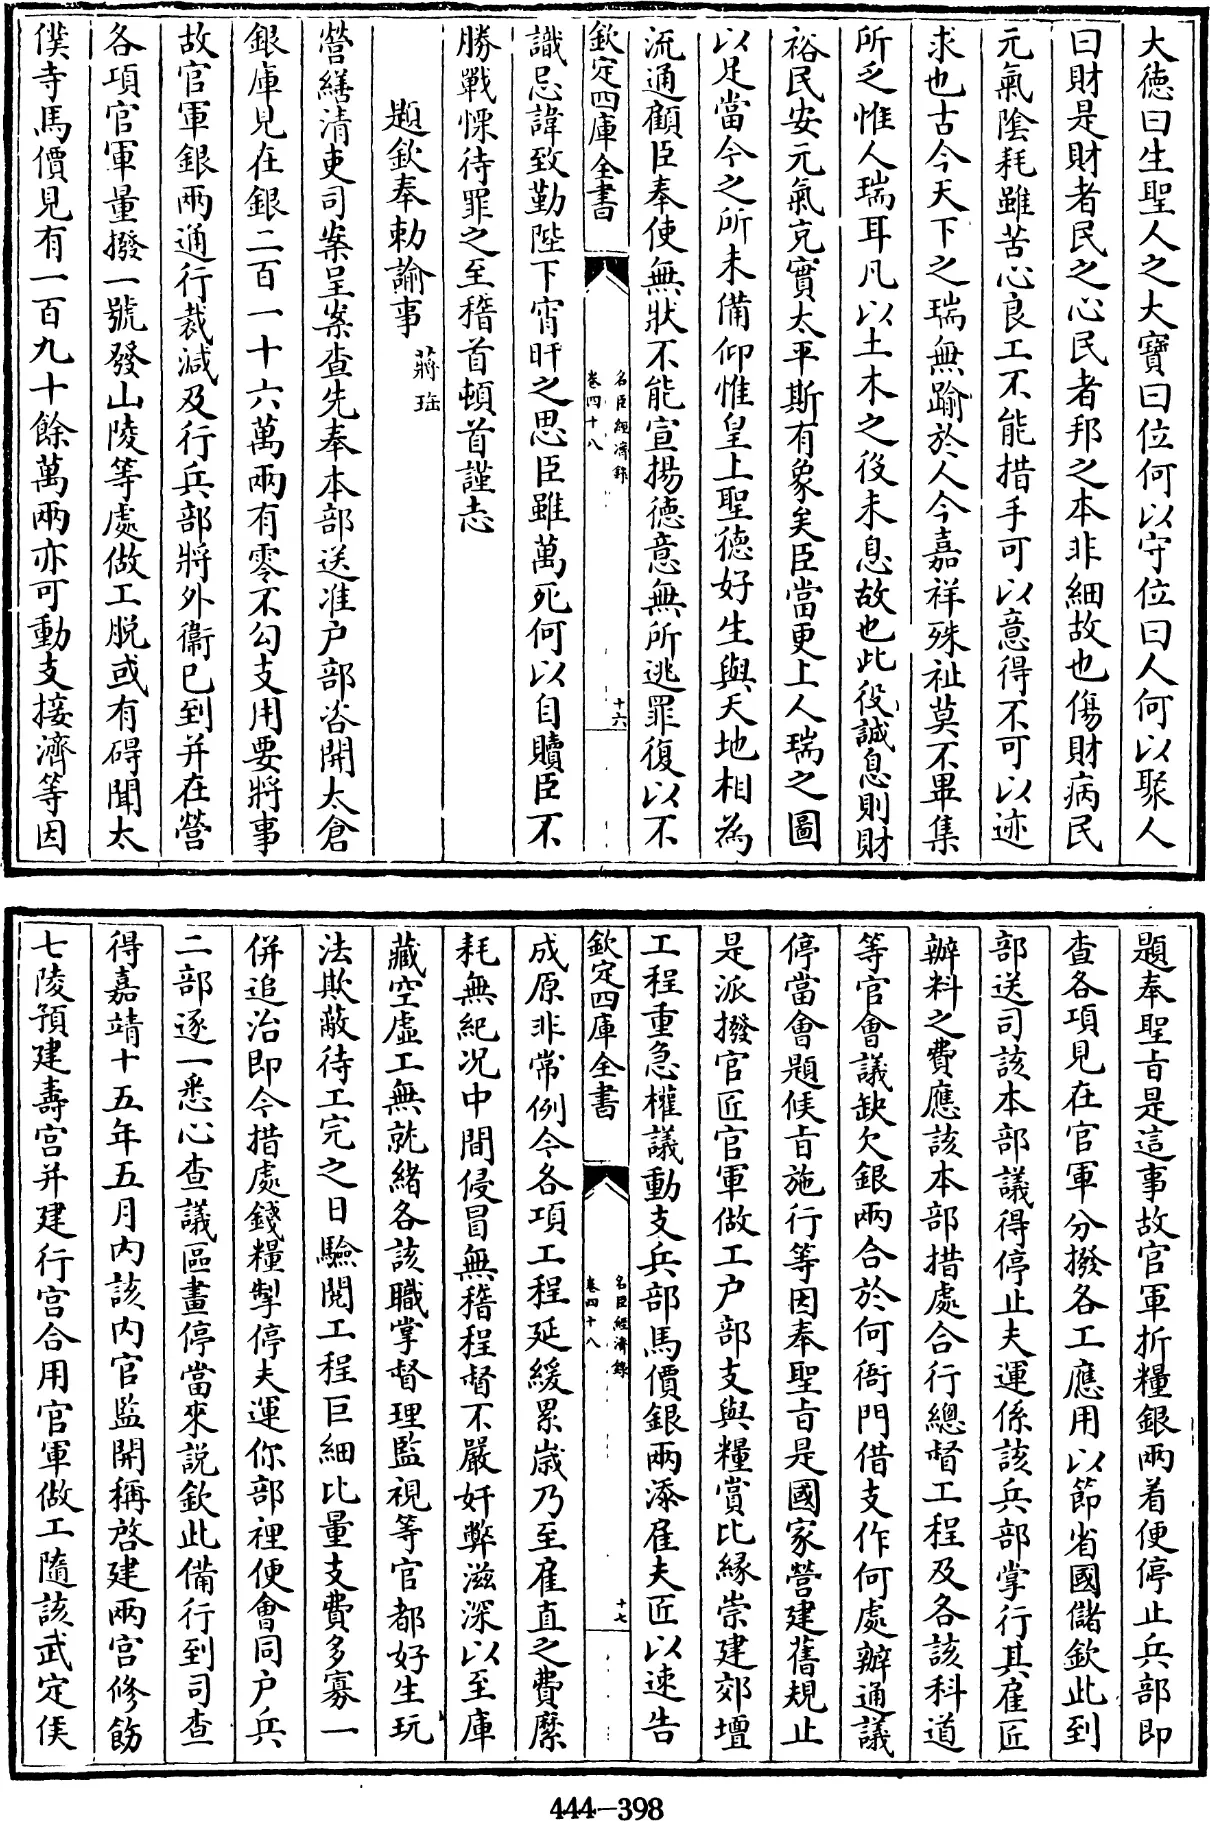 大德曰生聖人之大寶曰位何以守位曰人何以聚人
曰財是財者民之心民者邦之本非細故也傷財病民
元氣陰耗雖苦心良工不能措手可以意得不可以迹
求也古今天下之瑞無踰於人今嘉祥殊祉莫不畢集
所乏惟人瑞耳凡以土木之役未息故也此役誠息則財
裕民安元氣充實太平斯有象矣臣當更上人瑞之圖
以足當今之所未備仰惟皇上聖德好生與天地相為
流通顧臣奉使無狀不能宣揚德意無所逃罪復以不
欽定四庫全書
名臣經濟錄
卷四十八
十六
識忌諱致勤陛下宵旰之思臣雖萬死何以自贖臣不
勝戰慄待罪之至稽首頓首謹志
題欽奉勅諭事 蔣珤
營繕清吏司案呈案查先奉本部送准户部咨開太倉
銀庫見在銀二百一十六萬兩有零不勾支用要將事
故官軍銀兩通行裁減及行兵部將外衞已到并在營
各項官軍量撥一號發山陵等處做工脱或有碍聞太
僕寺馬價見有一百九十餘萬兩亦可動支接濟等因
題奉聖旨是這事故官軍折糧銀兩着便停止兵部即
查各項見在官軍分撥各工應用以節省國儲欽此到
部送司該本部議得停止夫運係該兵部掌行其雇匠
辦料之費應該本部措處合行總督工程及各該科道
等官會議缺欠銀兩合於何衙門借支作何處辦通議
停當會題候旨施行等因奉聖旨是國家營建舊規止
是派撥官匠官軍做工户部支與糧賞比緣崇建郊壇
工程重急權議動支兵部馬價銀兩添雇夫匠以速告
欽定四庫全書
名臣經濟錄
卷四十八
十七
成原非常例今各項工程延緩累歲乃至雇直之費縻
耗無紀况中間侵冒無稽程督不嚴奸弊滋深以至庫
藏空虛工無就緒各該職掌督理監視等官都好生玩
法欺蔽待工完之日驗閱工程巨細比量支費多寡一
併追治即今措處錢糧掣停夫運你部裡便會同户兵
二部逐一悉心查議區畫停當來說欽此備行到司查
得嘉靖十五年五月内該内官監開稱啓建兩宫修飭
七陵預建壽宫并建行宫合用官軍做工隨該武定侯
444-398